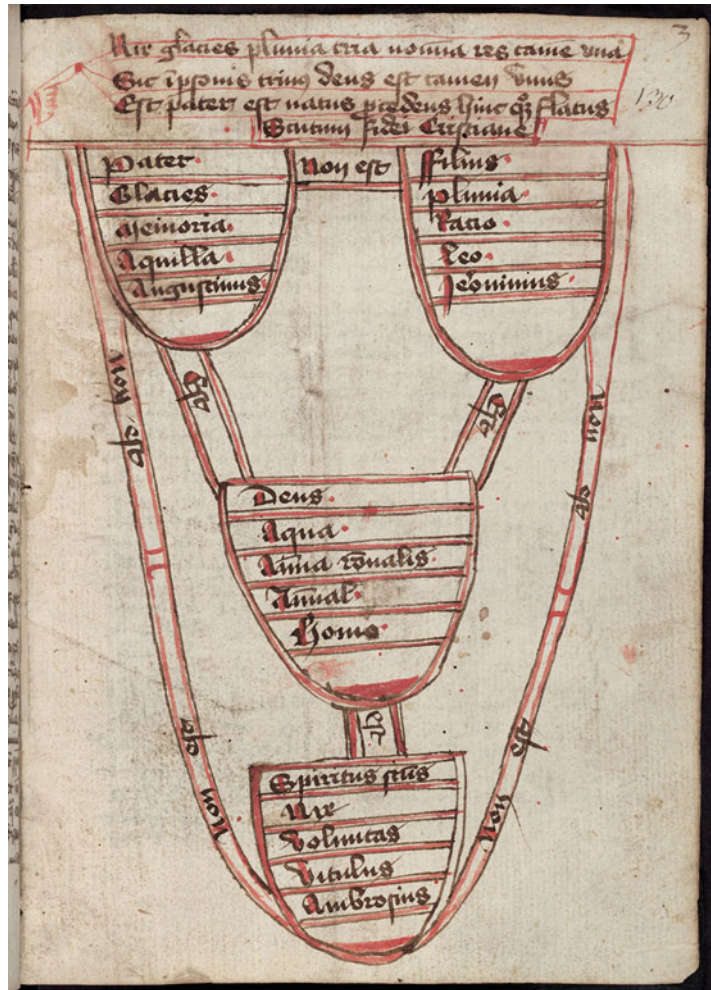 Nix glacies pluuia tria nomina res tamē vna
Sic ī psonis trinꝰ deus est tamen vnus
Est pater est natus deus hinc flatus
Scutum fidei Cristiane
3
130
Pater
Glacies
Memoria
Aquilla
Augustinus
Non est
ffilius
pluuia
Racio
Leo
Jeronimus
est
est
non
est
non
est
Deus
Aqua
Aīma rōnalis
Aīmal
homo
est
est
non
est
non
Spiritus sctūs
Nix
voluntas
vitulus
Ambrosius